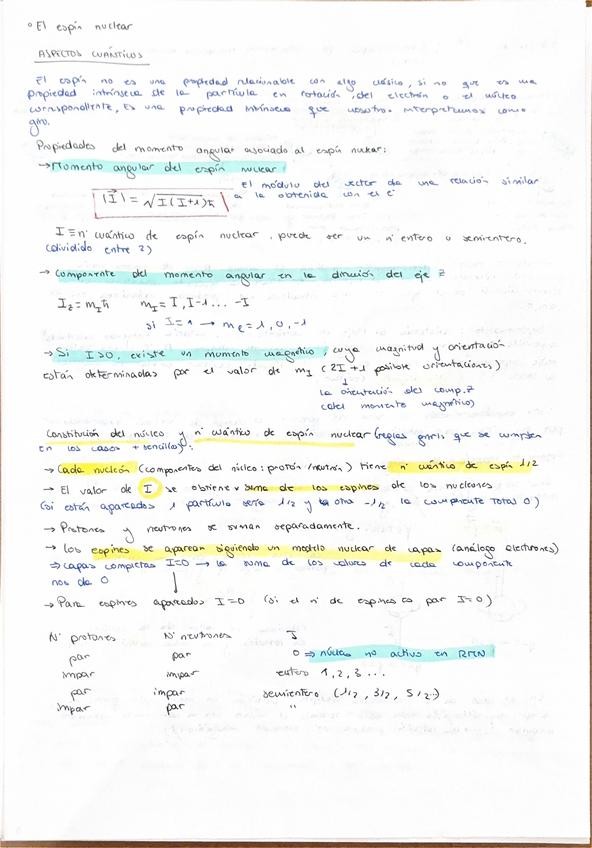 ° El espín nuclear
ASPECTOS CUÁNTICOS
El espín no es una propiedad relacionable con algo clásico, si no que es una
propiedad intrínseca de la partícula en rotación, del electrón o el núcleo
correspondiente, Es una propiedad intrínseca que nosotros interpretamos como
giro.
Propiedades del momento angular asociado al espín nuclear:
→ Momento angular del espín nuclear:
el módulo del vector da una relación similar
|I⃗| = √I(I+1) ħ a la obtenida con el e⁻
I ≡ nº cuántico de espín nuclear, puede ser un nº entero o semientero.
(dividido entre 2)
→ Componente del momento angular en la dirección del eje z
I_z = m_I ħ m_I = I, I-1 ... -I
si I = 1 → m_e = 1, 0, -1
→ Si I > 0, existe un momento magnético, cuya magnitud y orientación
están determinadas por el valor de m_I (2I + 1 posible orientaciones)
↓
la orientación del comp. z
(del momento magnético)
Constitución del núcleo y nº cuántico de espín nuclear (reglas gnrls. que se cumplen
en los casos + sencillos):
→ Cada nucleón (componentes del núcleo: protón/neutrón) tiene nº cuántico de espín 1/2
→ El valor de I se obtiene x suma de los espines de los nucleones
(si están apareados 1 partícula sería 1/2 y la otra -1/2 la componente total 0)
→ Protones y neutrones se suman separadamente.
→ Los espines se aparean siguiendo un modelo nuclear de capas (análogo electrones)
⇒ capas completas I=0 → la suma de los valores de cada componente
nos da 0
→ Para espines apareados I=0 (si el nº de espines es par I=0)
Nº protones Nº neutrones I
par par 0 ⇒ núcleo no activo en RMN
impar impar entero 1, 2, 3 ...
par impar semientero (1/2, 3/2, 5/2..)
impar par "